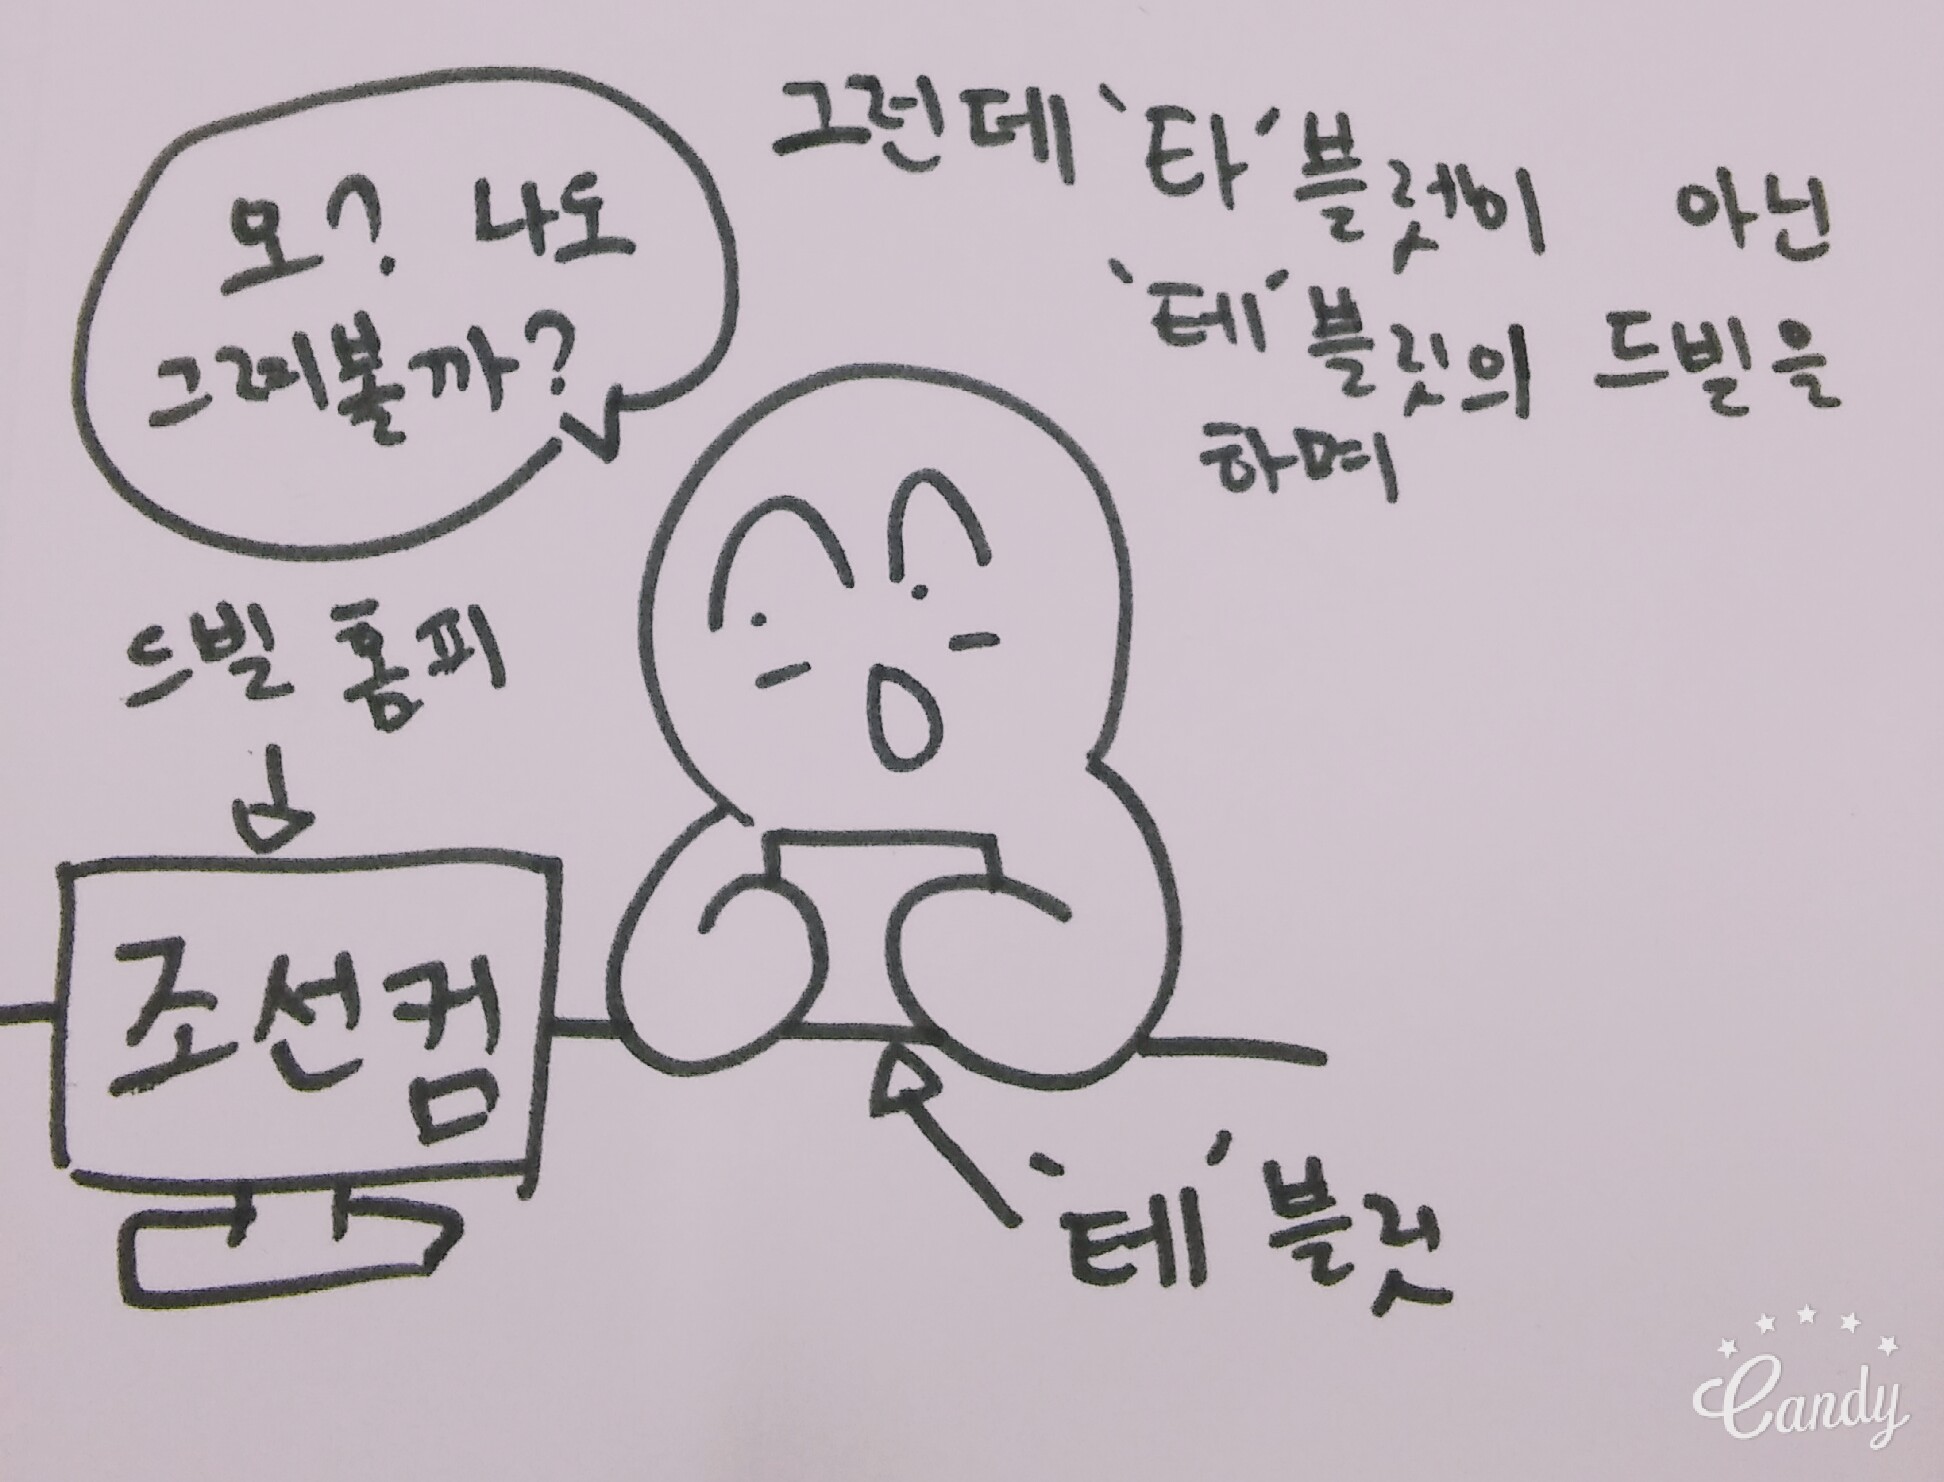 오? 나도
그려볼까?
그런데 '타'블렛이 아닌
'테'블릿의 드빌을
하며
드빌 홈피
조선컴
'테'블릿
Candy